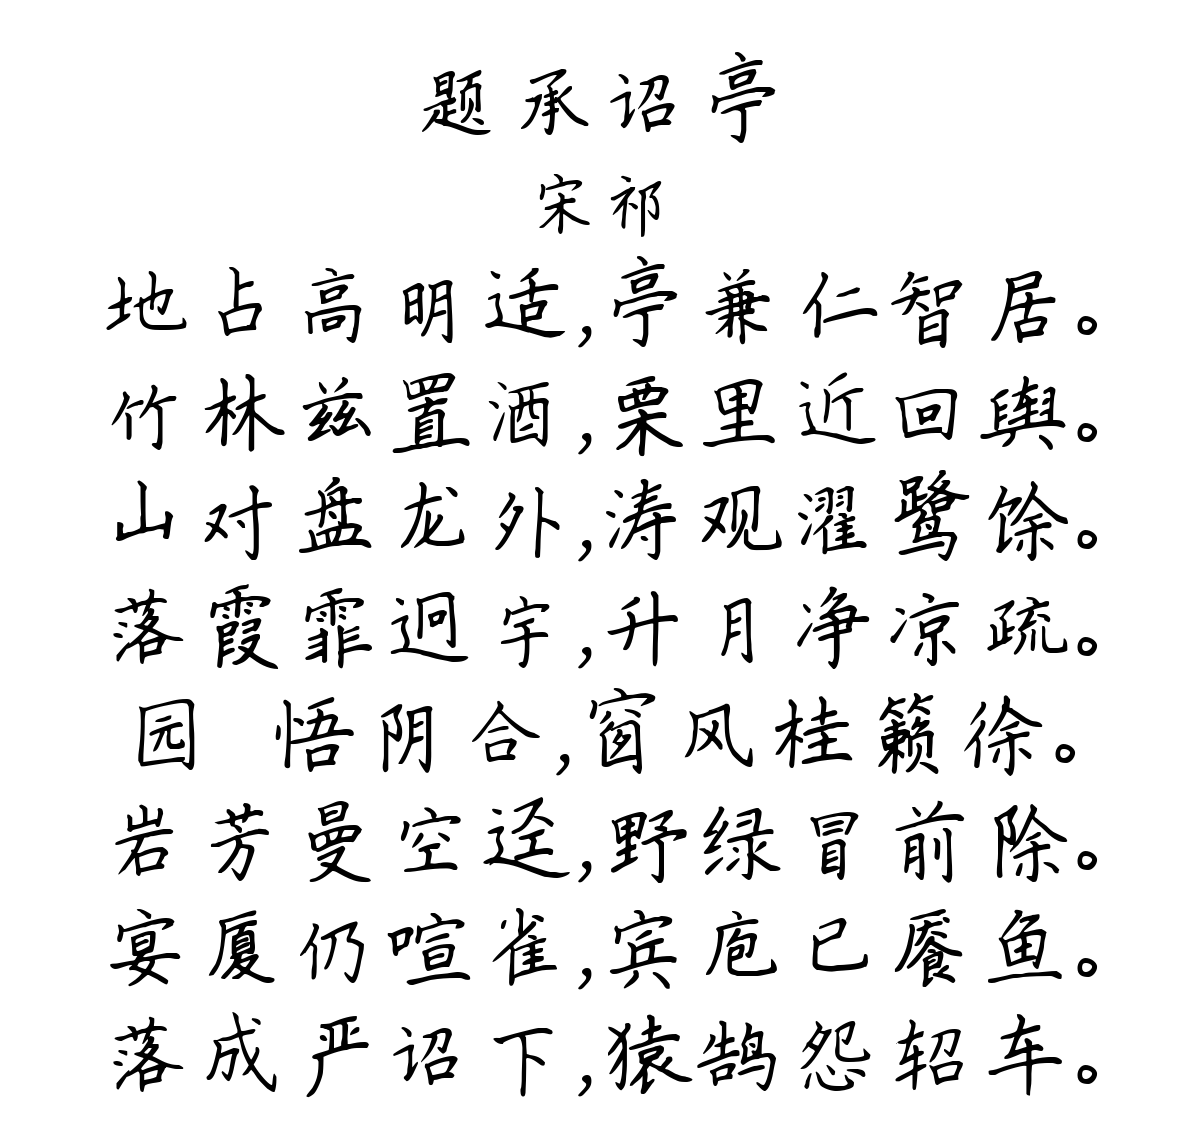 题承诏亭
宋祁
地占高明适,亭兼仁智居。
竹林兹置酒,栗里近回舆。
山对盘龙外,涛观濯鹭馀。
落霞霏迥宇,升月净凉疏。
园 悟阴合,窗风桂籁徐。
岩芳曼空迳,野绿冒前除。
宴厦仍喧雀,宾庖已餍鱼。
落成严诏下,猿鹄怨轺车。